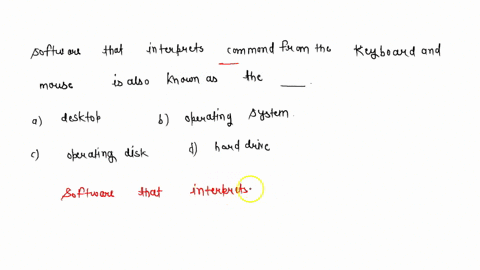 software that interprets command from the keyboard and
mouse is also known as the ___.
a) desktop b) operating system.
c) operating disk d) hard drive
Software that interprets.